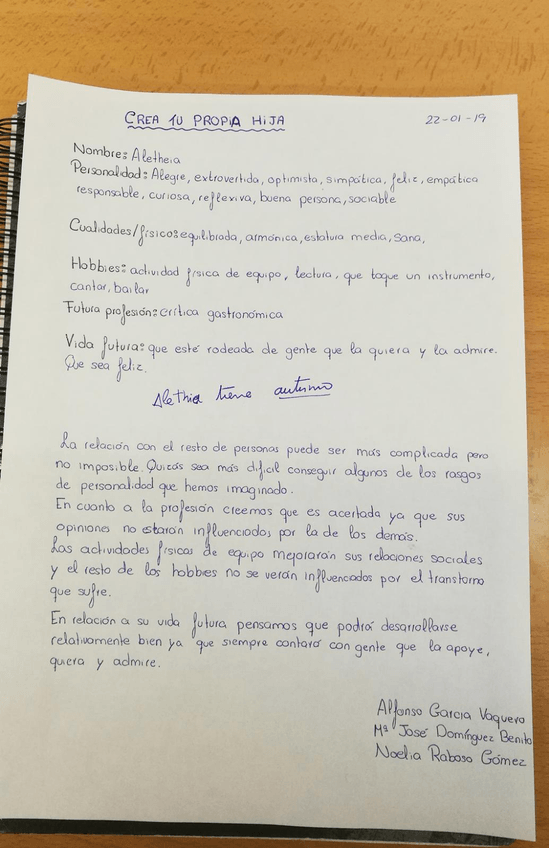 CREA TU PROPIA HIJA
22-01-19
Nombre: Aletheia
Personalidad: Alegre, extrovertida, optimista, simpática, feliz, empática
responsable, curiosa, reflexiva, buena persona, sociable
Cualidades/físico: equilibrada, armónica, estatura media, sana,
Hobbies: actividad física de equipo, lectura, que toque un instrumento,
cantar, bailar
Futura profesión: crítica gastronómica
Vida futura: que esté rodeada de gente que la quiera y la admire.
Que sea feliz.
Alethia tiene autismo
La relación con el resto de personas puede ser más complicada pero
no imposible. Quizás sea más difícil conseguir algunos de los rasgos
de personalidad que hemos imaginado.
En cuanto a la profesión creemos que es acertada ya que sus
opiniones no estarán influenciados por la de los demás.
Las actividades físicas de equipo mejorarán sus relaciones sociales
y el resto de los hobbies no se verán influenciados por el transtorno
que sufre.
En relación a su vida futura pensamos que podrá desarrollarse
relativamente bien ya que siempre contará con gente que la apoye,
quiera y admire.
Alfonso García Vaquero
Mª José Domínguez Benito
Noelia Raboso Gómez